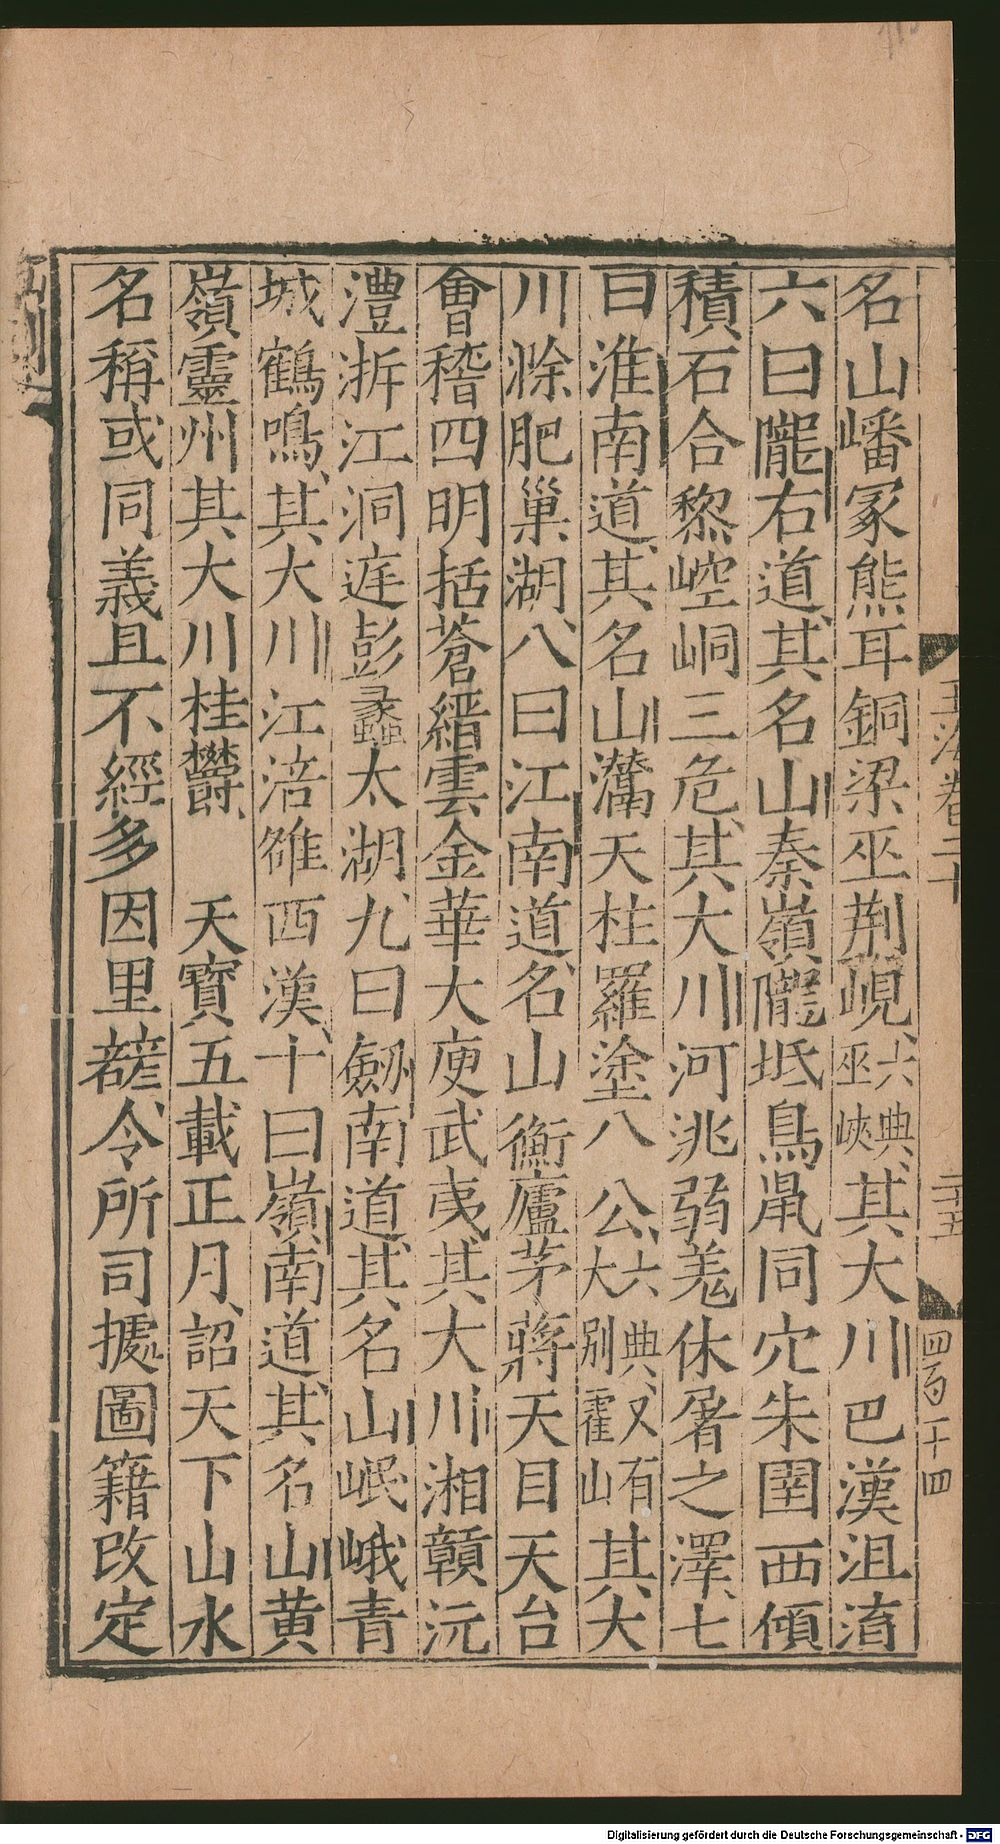 名山嶓冢熊耳銅梁巫荆峴六典巫峽其大川巴漢沮淯
六曰隴右道其名山秦嶺隴坻鳥鼠同穴朱圉西傾
積石合黎崆峒三危其大川河洮弱羌休屠之澤七
曰淮南道其名山灊天柱羅塗八公六典又有大別霍山其大
川滁肥巢湖八曰江南道名山衡廬茅蔣天目天台
會稽四明括蒼縉雲金華大庾武夷其大川湘贛沅
澧浙江洞庭彭蠡太湖九曰劒南道其名山岷峨青
城鶴鳴其大川江涪雒西漢十曰嶺南道其名山黄
嶺靈州其大川桂鬱　天寶五載正月詔天下山水
名稱或同義且不經多因里諺令所司據圖籍改定
玉海卷二十
二十五
四百十四
Digitalisierung gefördert durch die Deutsche Forschungsgemeinschaft - DFG